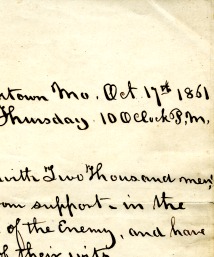 rtown Mo. Oct 17th 1861
Thursday 10 OClock P.M,
with Two Thousand men
om support - in the
of the Enemy, and have
of their wits